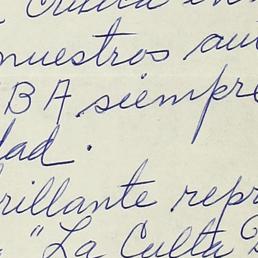 nuestros aut
BA siempre
dad.
rillante repr
"La Culta